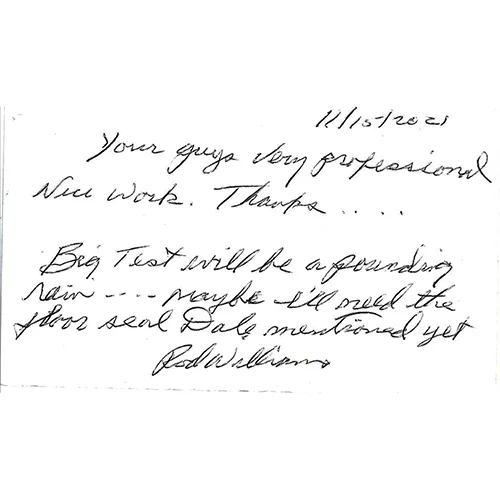 11/15/2021
Your guys very professional
Nice work. Thanks . . . . .
Big Test will be a pounding
rain ---- maybe I'll need the
floor seal Dale mentioned yet
Rod Williams